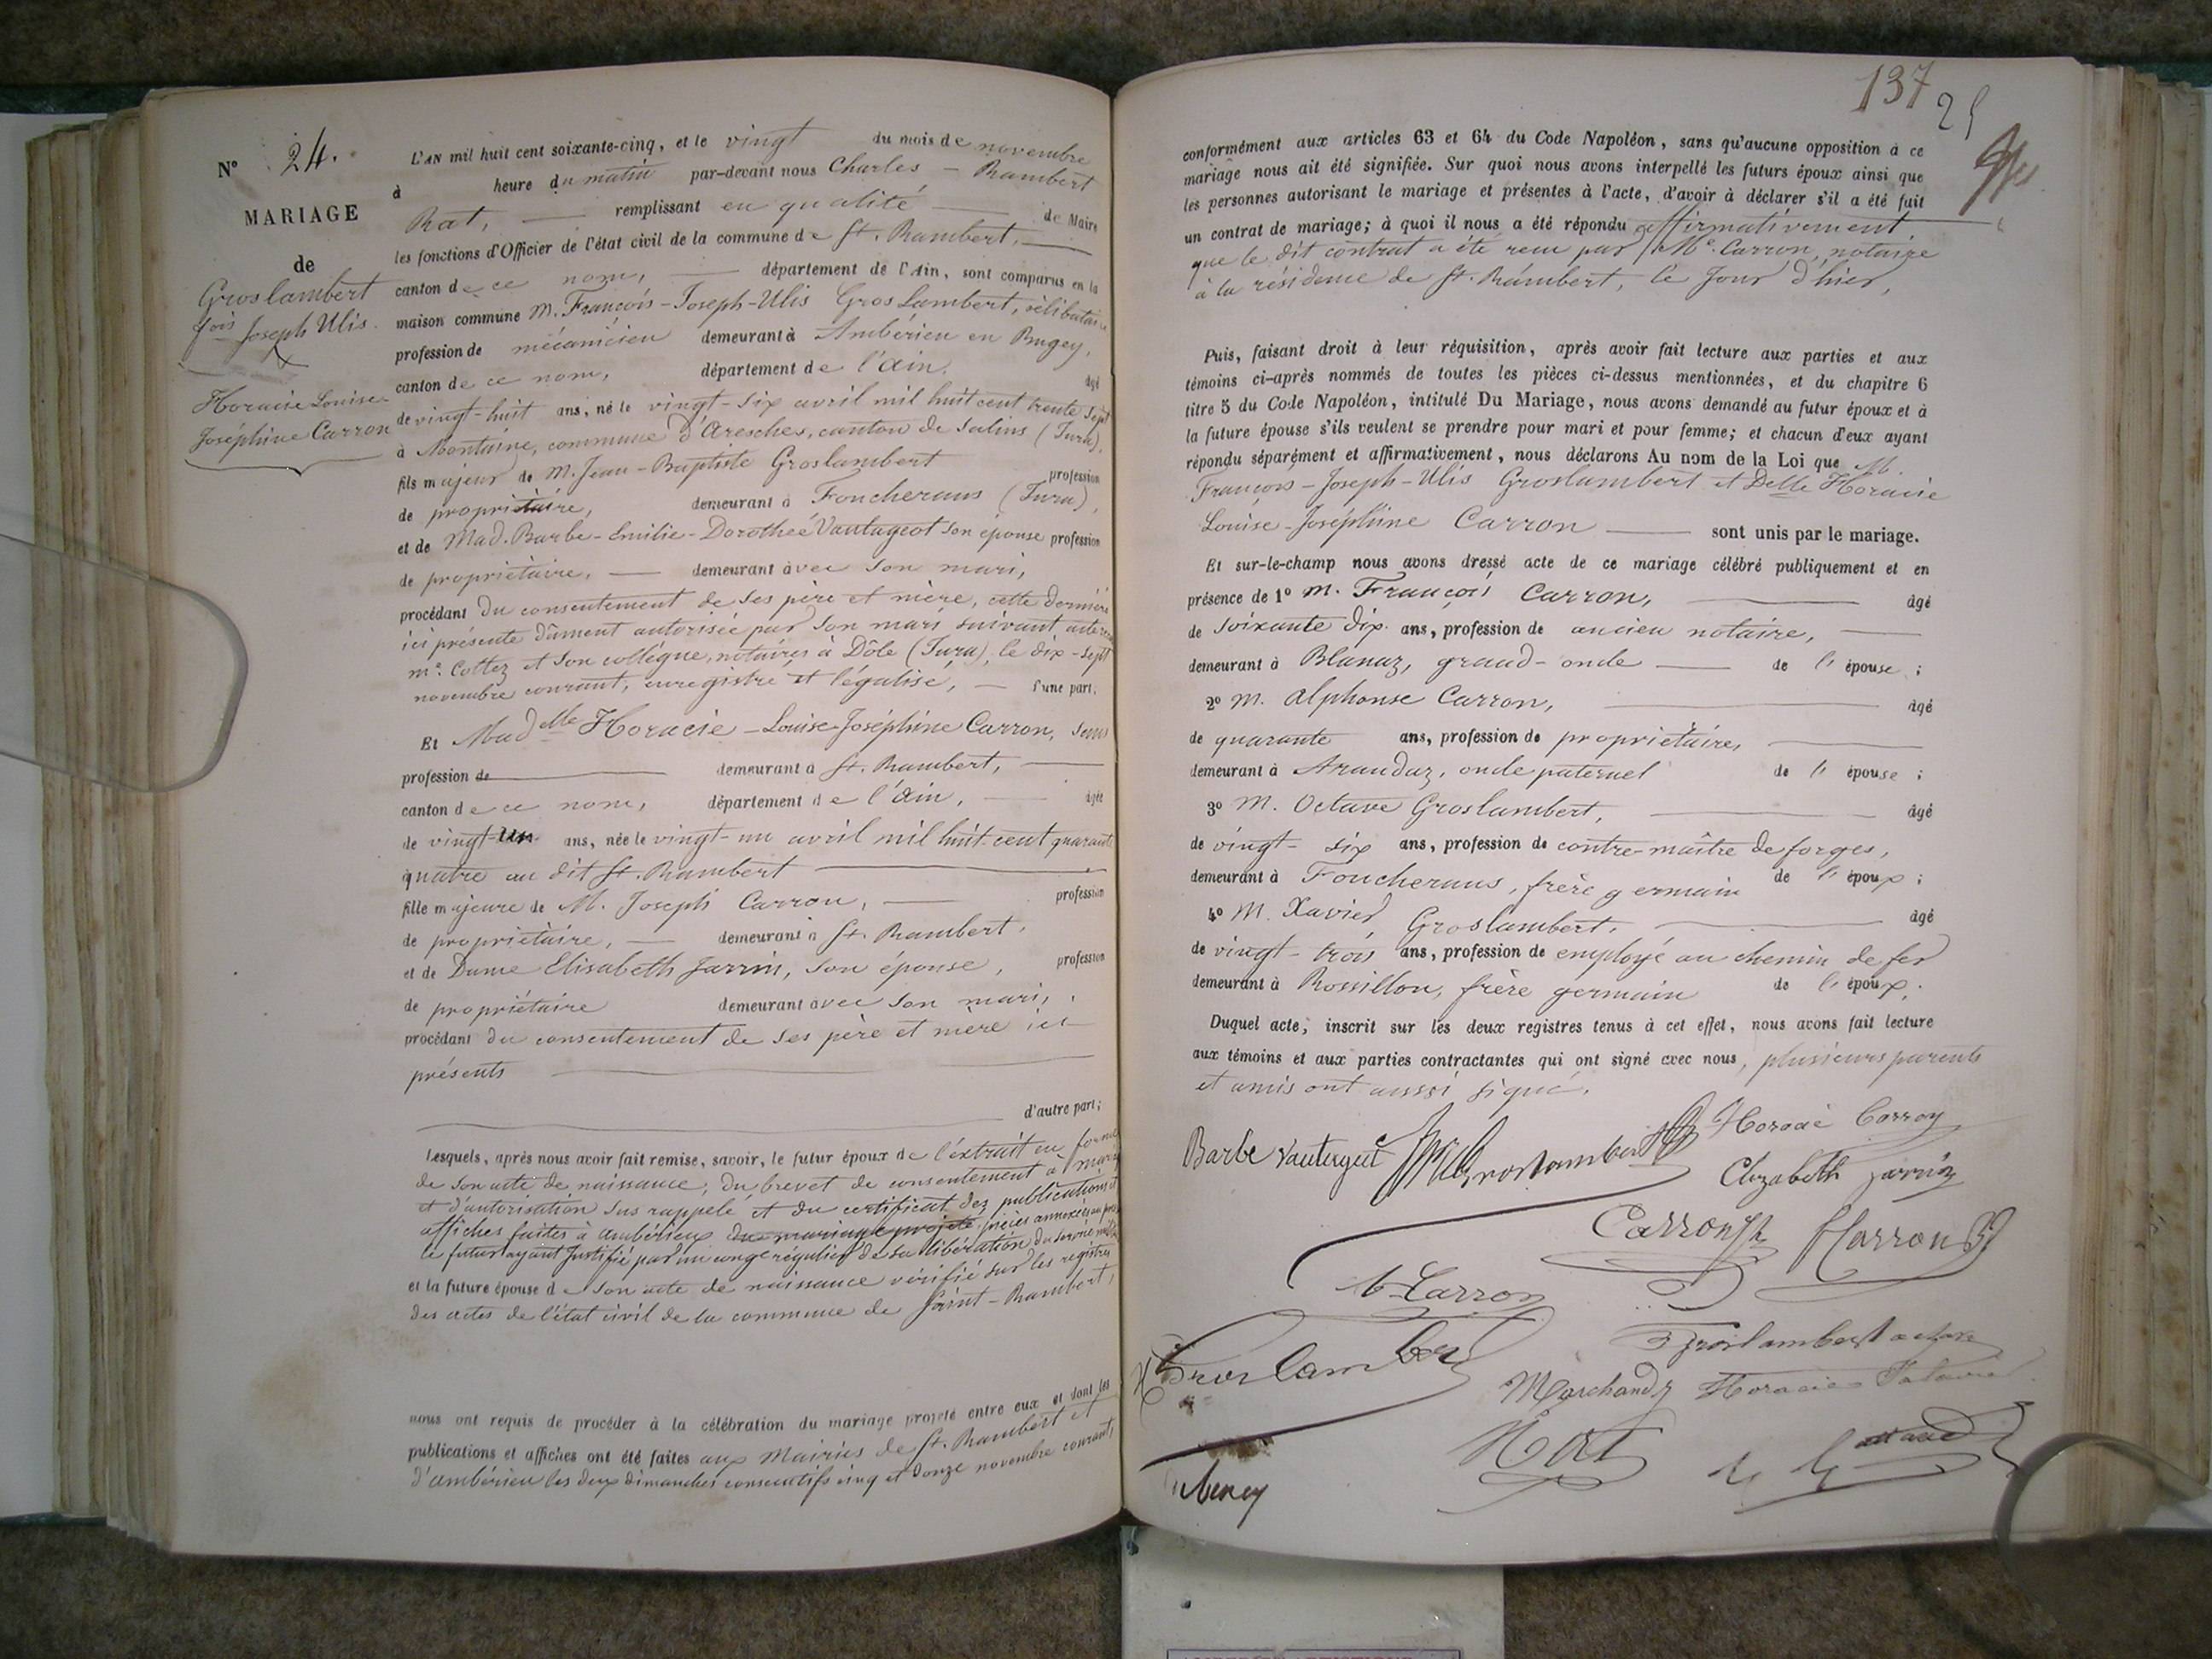 N° 24.
MARIAGE
de
Groslambert
fois Joseph Ulis.
Horacie Louise
Joséphine Carron
L'AN mil huit cent soixante-cinq, et le vingt du mois de novembre
à heure du matin par-devant nous Charles - Rambert
Rat, remplissant en qualité de Maire
les fonctions d'Officier de l'état civil de la commune de St. Rambert,
canton de ce nom, département de l'Ain, sont comparus en la
maison commune M. François-Joseph-Ulis GrosLambert, célibataire
profession de mécanicien demeurant à Ambérieu en Bugey,
canton de ce nom, département de l'Ain. âgé
de vingt-huit ans, né le vingt-six avril mil huit cent trente sept
à Montaine, commune d'Aresches, canton de Salins (Jura),
fils majeur de M. Jean-Baptiste Groslambert profession
de propriétaire, demeurant à Foucherans (Jura),
et de Mad. Barbe-Emilie-Dorothée Vautageot son épouse profession
de propriétaire, demeurant avec son mari,
procédant du consentement de ses père et mère, cette dernière
ici présente dûment autorisée par son mari suivant acte
me. Cottez et son collègue, notaires à Dôle (Jura), le dix-sept
novembre courant, enregistré et légalisé, d'une part.
Et Madelle Horacie-Louise-Joséphine Carron, sans
profession de demeurant à St. Rambert,
canton de ce nom, département de l'Ain, âgée
de vingt-un ans, née le vingt-un avril mil huit-cent quarante
quatre au dit St. Rambert
fille majeure de M. Joseph Carron, profession
de propriétaire, demeurant à St. Rambert,
et de Dame Elisabeth Jarrin, son épouse, profession
de propriétaire demeurant avec son mari,
procédant du consentement de ses père et mère ici
présents
d'autre part;
Lesquels, après nous avoir fait remise, savoir, le futur époux de l'extrait en forme
de son acte de naissance, du brevet de consentement à mariage
et d'autorisation sus rappelé et du certificat des publications et
affiches faites à Ambérieux du mariage projeté pièces annexées au
le futur ayant justifié par un congé régulier de sa libération du service
et la future épouse de son acte de naissance vérifié sur les registres
des actes de l'état civil de la commune de Saint-Rambert,
nous ont requis de procéder à la célébration du mariage projeté entre eux et dont les
publications et affiches ont été faites aux Mairies de St. Rambert et
d'ambérieu les deux dimanches consécutifs cinq et douze novembre courant,
137
25
conformément aux articles 63 et 64 du Code Napoléon, sans qu'aucune opposition à ce
mariage nous ait été signifiée. Sur quoi nous avons interpellé les futurs époux ainsi que
les personnes autorisant le mariage et présentes à l'acte, d'avoir à déclarer s'il a été fait
un contrat de mariage; à quoi il nous a été répondu affirmativement,
que le dit contrat a été reçu par Me. Carron, notaire
à la résidence de St. Rambert, le jour d'hier,
Puis, faisant droit à leur réquisition, après avoir fait lecture aux parties et aux
témoins ci-après nommés de toutes les pièces ci-dessus mentionnées, et du chapitre 6
titre 5 du Code Napoléon, intitulé Du Mariage, nous avons demandé au futur époux et à
la future épouse s'ils veulent se prendre pour mari et pour femme; et chacun d'eux ayant
répondu séparément et affirmativement, nous déclarons Au nom de la Loi que M.
François-Joseph-Ulis Groslambert et Delle Horacie
Louise-Joséphine Carron sont unis par le mariage.
Et sur-le-champ nous avons dressé acte de ce mariage célébré publiquement et en
présence de 1° M. François Carron, âgé
de soixante dix ans, profession de ancien notaire,
demeurant à Blanaz, grand-oncle de l'épouse;
2° M. Alphonse Carron, âgé
de quarante ans, profession de propriétaire,
demeurant à Arandaz, oncle paternel de l'épouse;
3° M. Octave Groslambert, âgé
de vingt-six ans, profession de contre-maître de forges,
demeurant à Foucherans, frère germain de l'époux;
4° M. Xavier Groslambert, âgé
de vingt-trois ans, profession de employé au chemin de fer
demeurant à Rossillon, frère germain de l'époux;
Duquel acte, inscrit sur les deux registres tenus à cet effet, nous avons fait lecture
aux témoins et aux parties contractantes qui ont signé avec nous, plusieurs parents
et amis ont aussi signé.
Barbe Vautageot Groslambert Horacie Carron
Elizabeth Jarrin
Carron Carron
Carron
Groslambert octave
Groslambert
Marchand Horacie
Rat